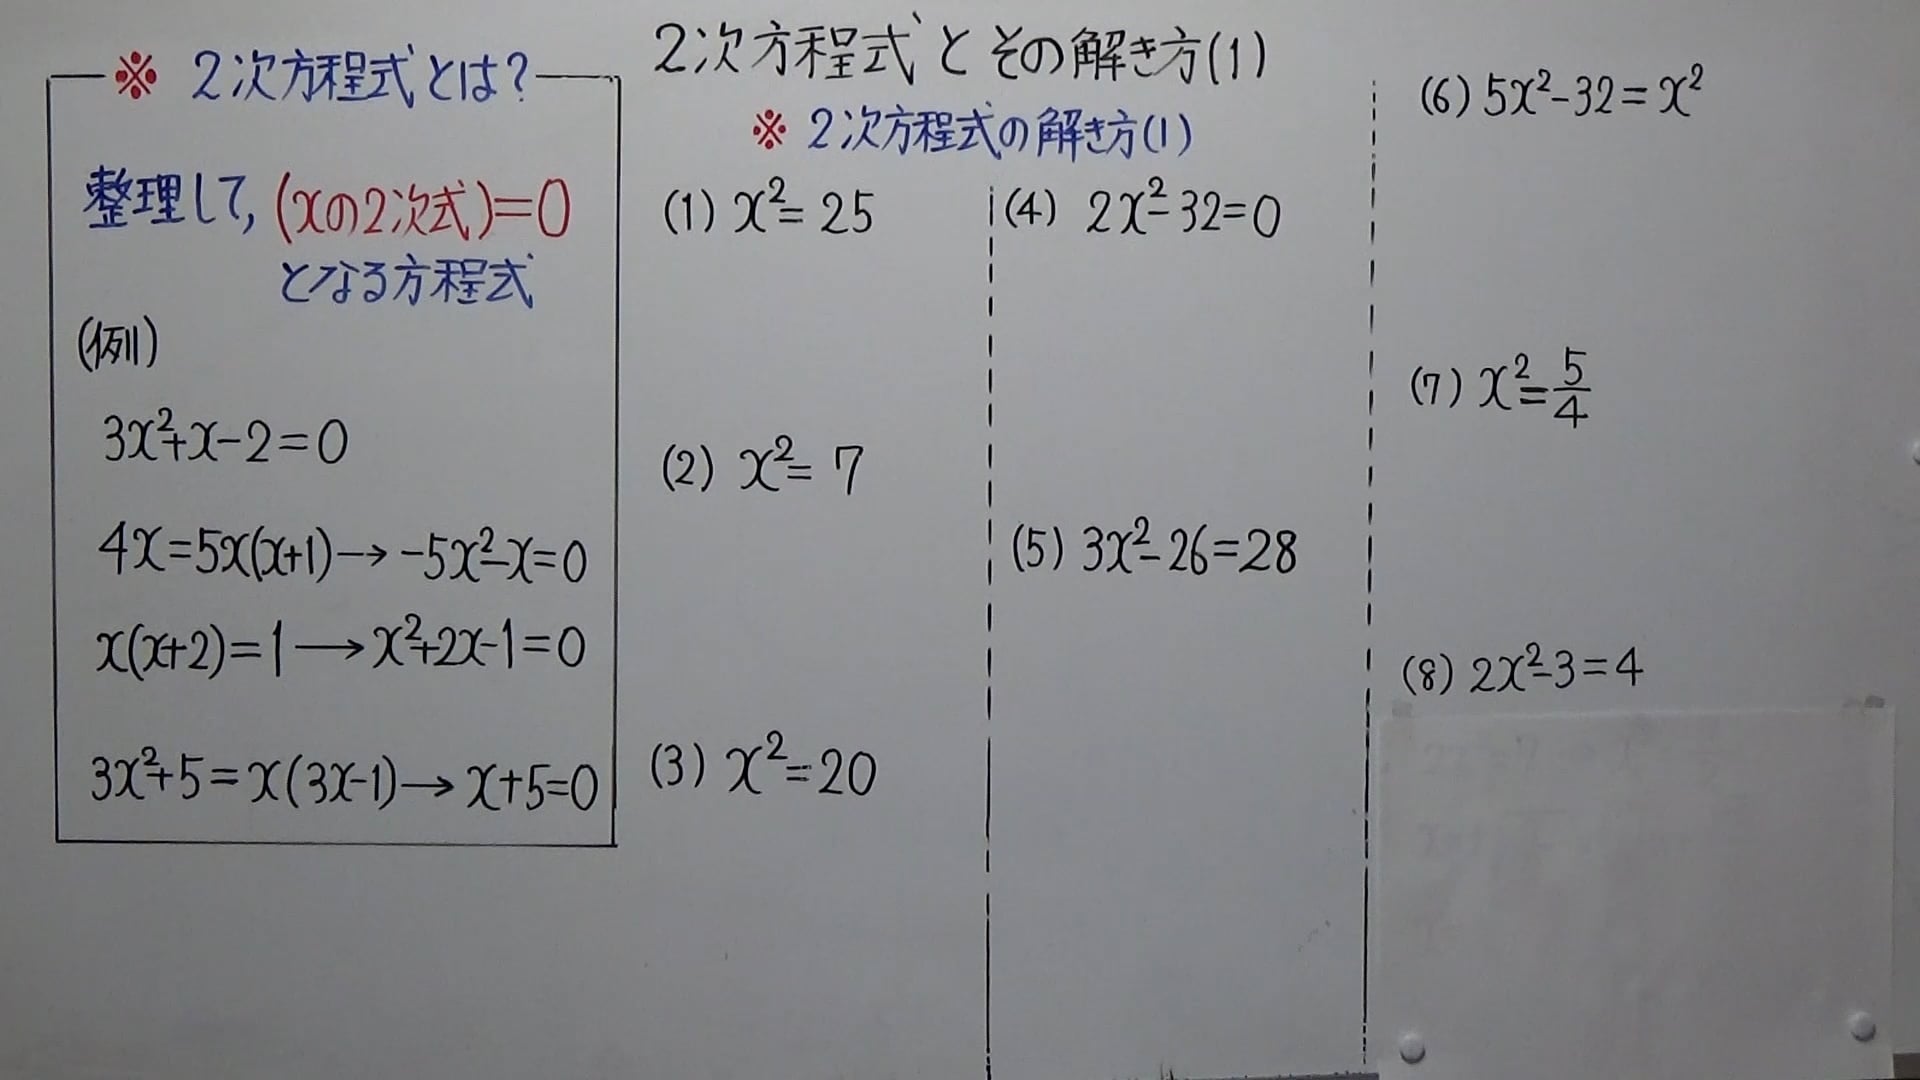 2次方程式とその解き方(1)
※ 2次方程式とは?
整理して, (xの2次式)=0
となる方程式
(例)
3x²+x-2=0
4x=5x(x+1)→-5x²-x=0
x(x+2)=1→x²+2x-1=0
3x²+5=x(3x-1)→x+5=0
※ 2次方程式の解き方(1)
(1) x²=25
(2) x²=7
(3) x²=20
(4) 2x²-32=0
(5) 3x²-26=28
(6) 5x²-32=x²
(7) x²=5/4
(8) 2x²-3=4